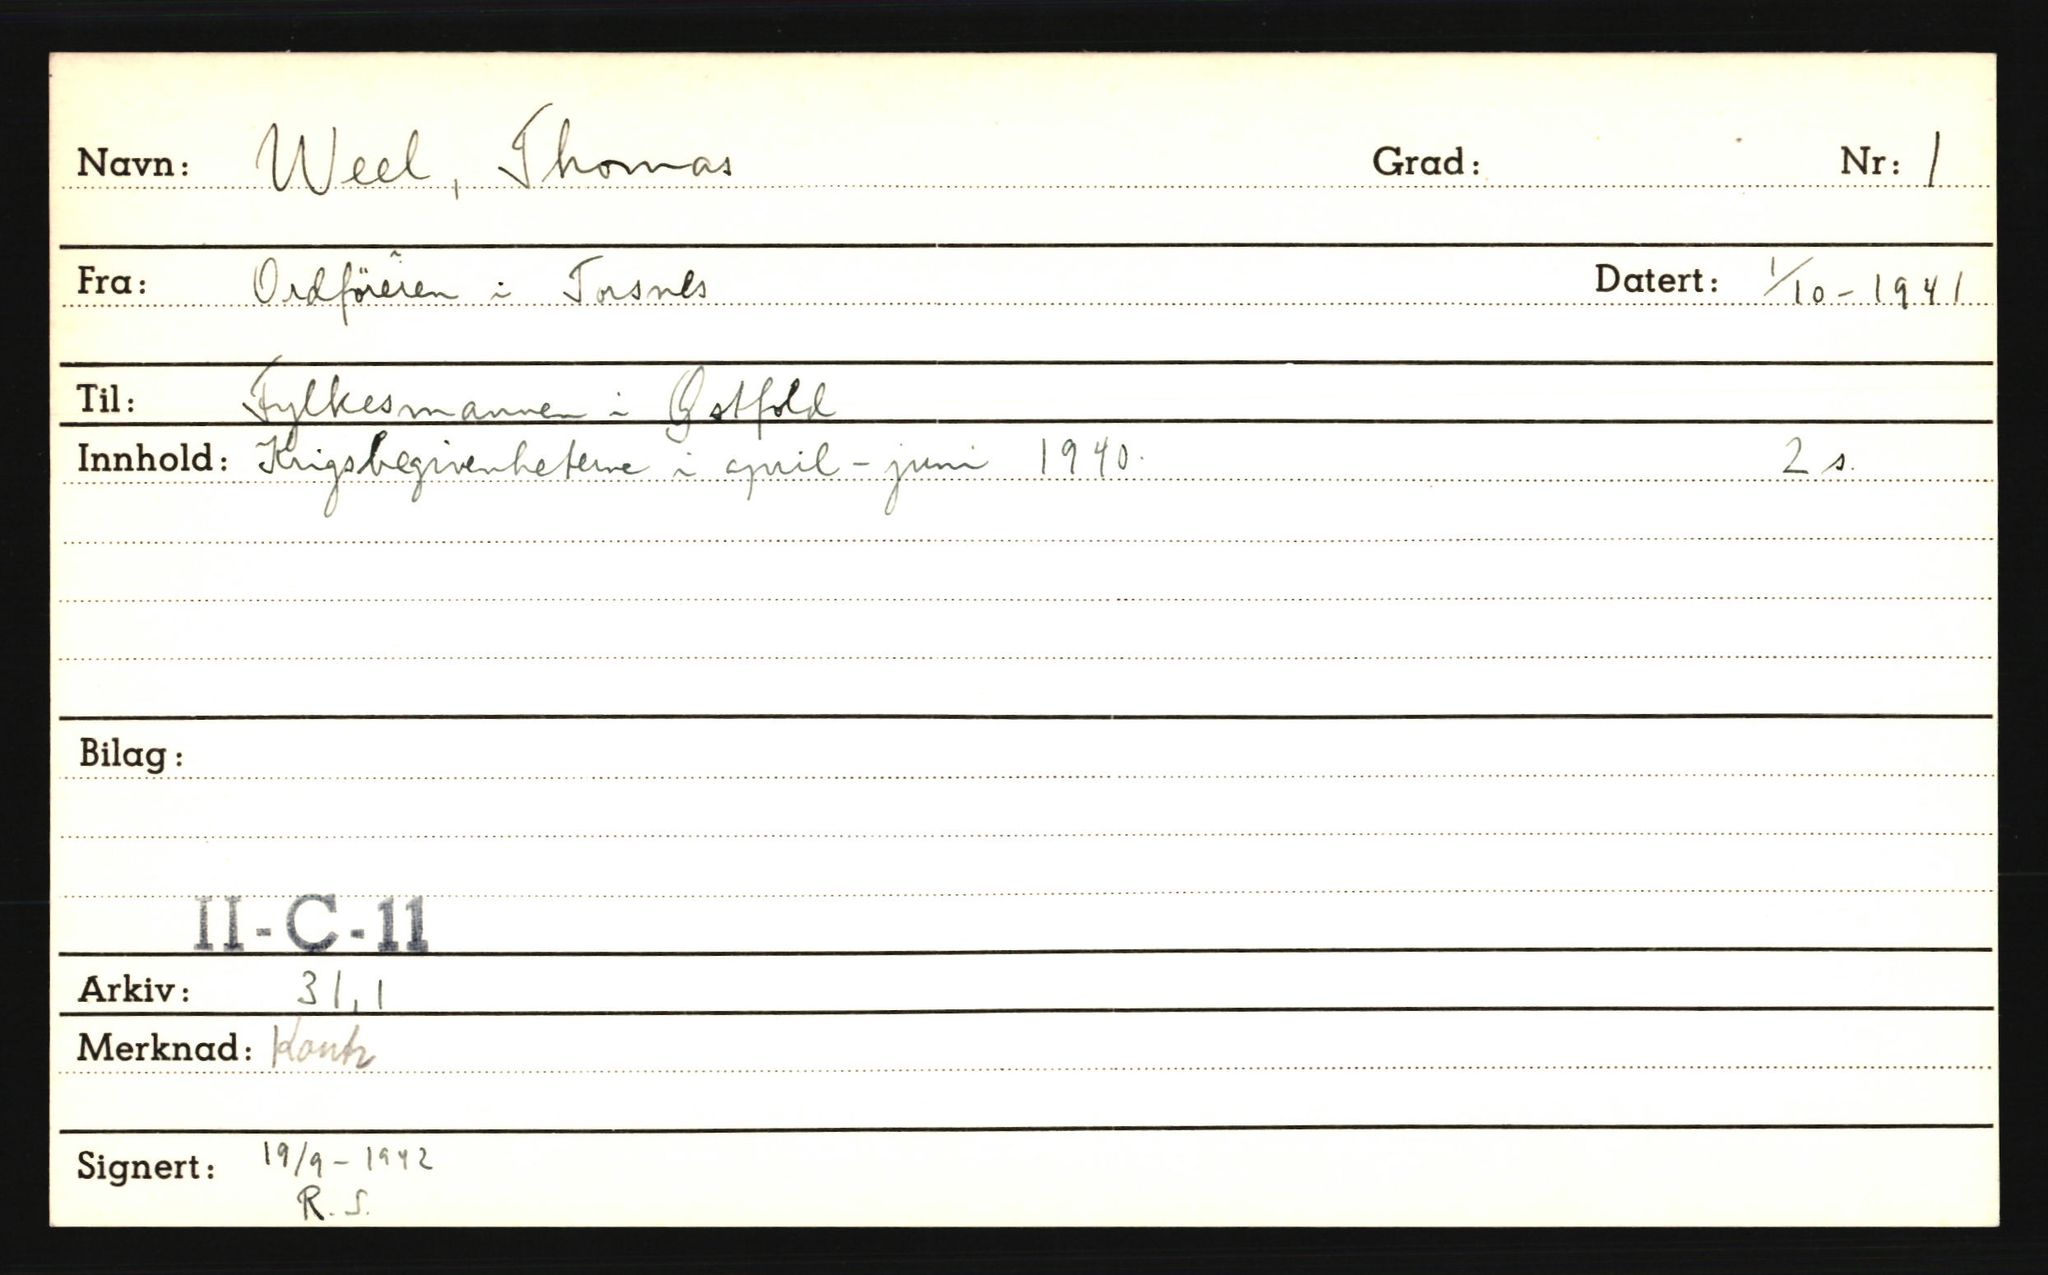 Navn: Weel, Thomas Grad: Nr: 1
Fra: Ordføreren i Torsnes Datert: 1/10-1941
Til: Fylkesmannen i Østfold
Innhold: Krigsbegivenhetene i april-juni 1940. 2 s.
Bilag:
II-C-11
Arkiv: 31,1
Merknad:
Signert: 19/9-1942
R.S.